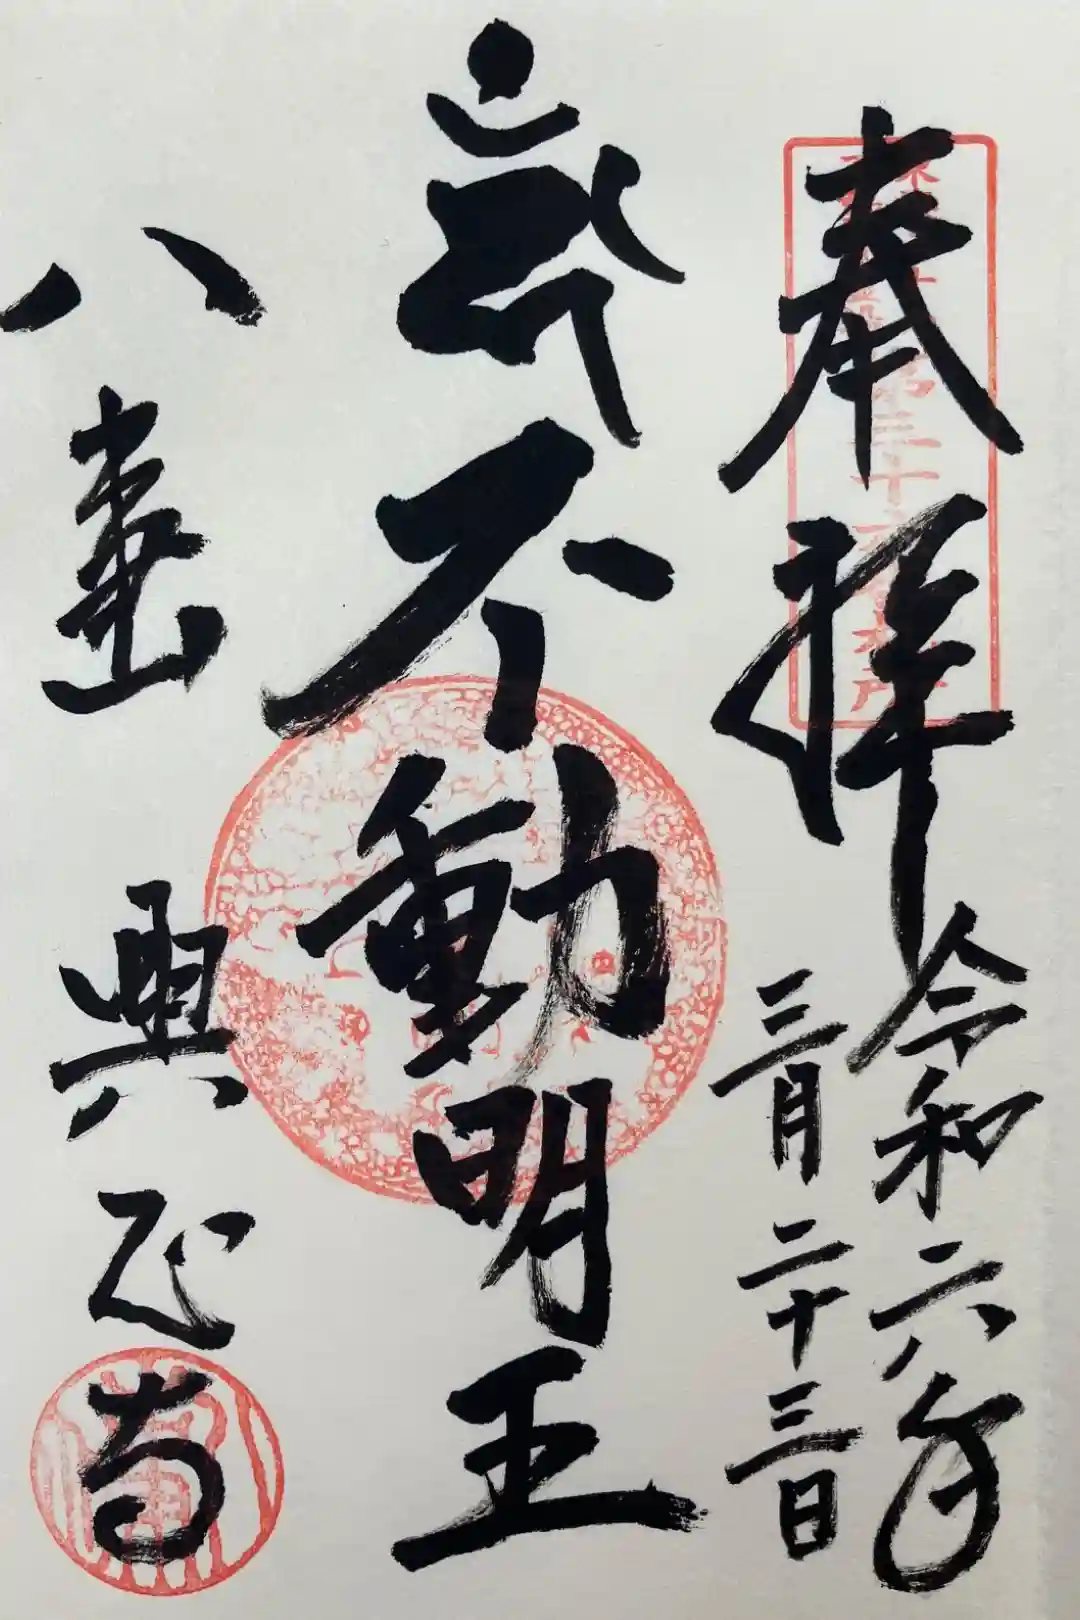 奉拝
令和六年
三月二十三日
不動明王
八事山 興正寺